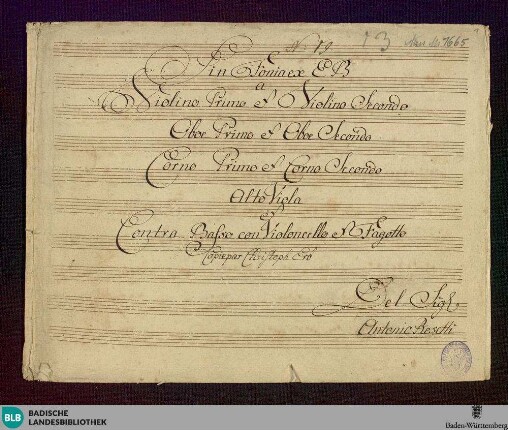 No 19 13 Mus. Ms. 1665
Sin Fonia ex E B
a
Violino Primo et Violino Secondo
Oboe Primo et Oboe Secondo
Corno Primo et Corno Secondo
Alto Viola
Contra Basso con Violoncello et Fagotto
Copie par Christoph Erb
Del Sigl:
Antonio Rosetti
BLB BADISCHE
LANDESBIBLIOTHEK
Baden-Württemberg